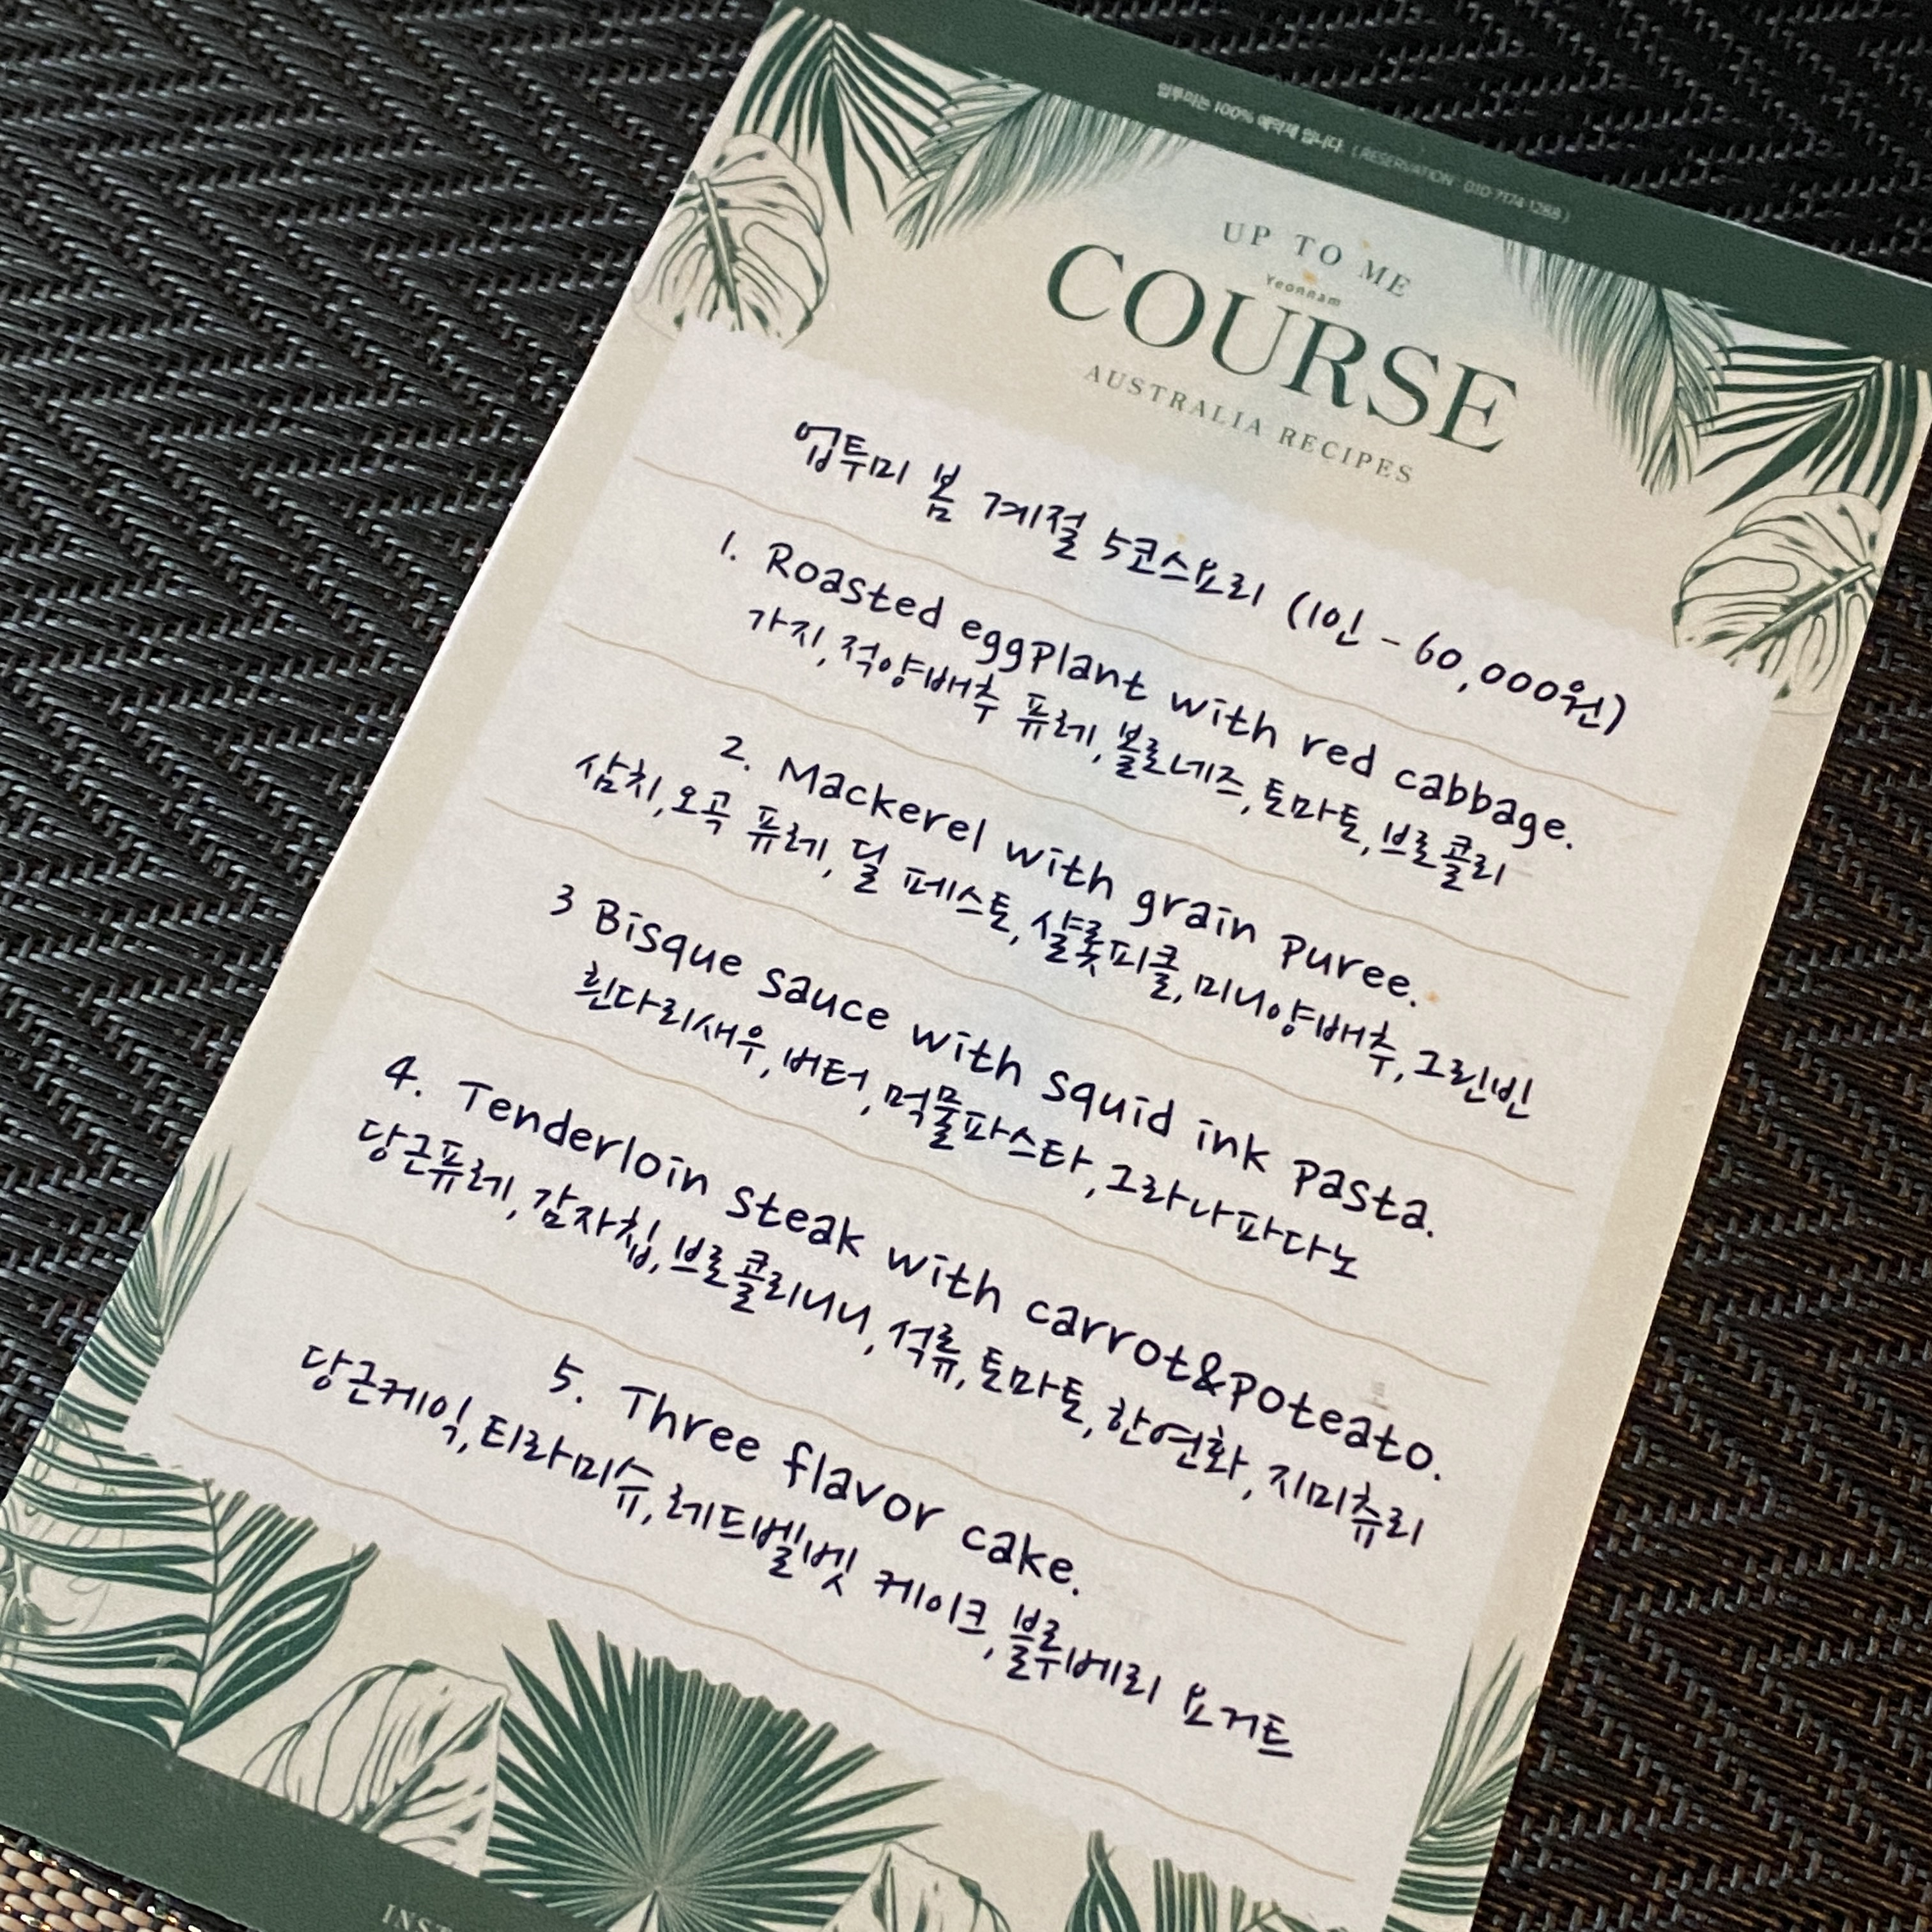 업투미는 100% 예약제 입니다. ( RESERVATION 010 7174 1288 )
UP TO ME
Yeonnam
COURSE
AUSTRALIA RECIPES
업투미 봄 계절 5코스요리 (1인 - 60,000원)
1. Roasted eggplant with red cabbage.
가지, 적양배추 퓨레, 볼로네즈, 토마토, 브로콜리
2. Mackerel with grain puree.
삼치, 오곡 퓨레, 딜 페스토, 샬롯피클, 미니양배추, 그린빈
3 Bisque sauce with squid ink pasta.
흰다리새우, 버터, 먹물파스타, 그라나파다노
4. Tenderloin steak with carrot&poteato.
당근퓨레, 감자칩, 브로콜리니니, 석류, 토마토, 한연화, 지미츄리
5. Three flavor cake.
당근케익, 티라미슈, 레드벨벳 케이크, 블루베리 요거트